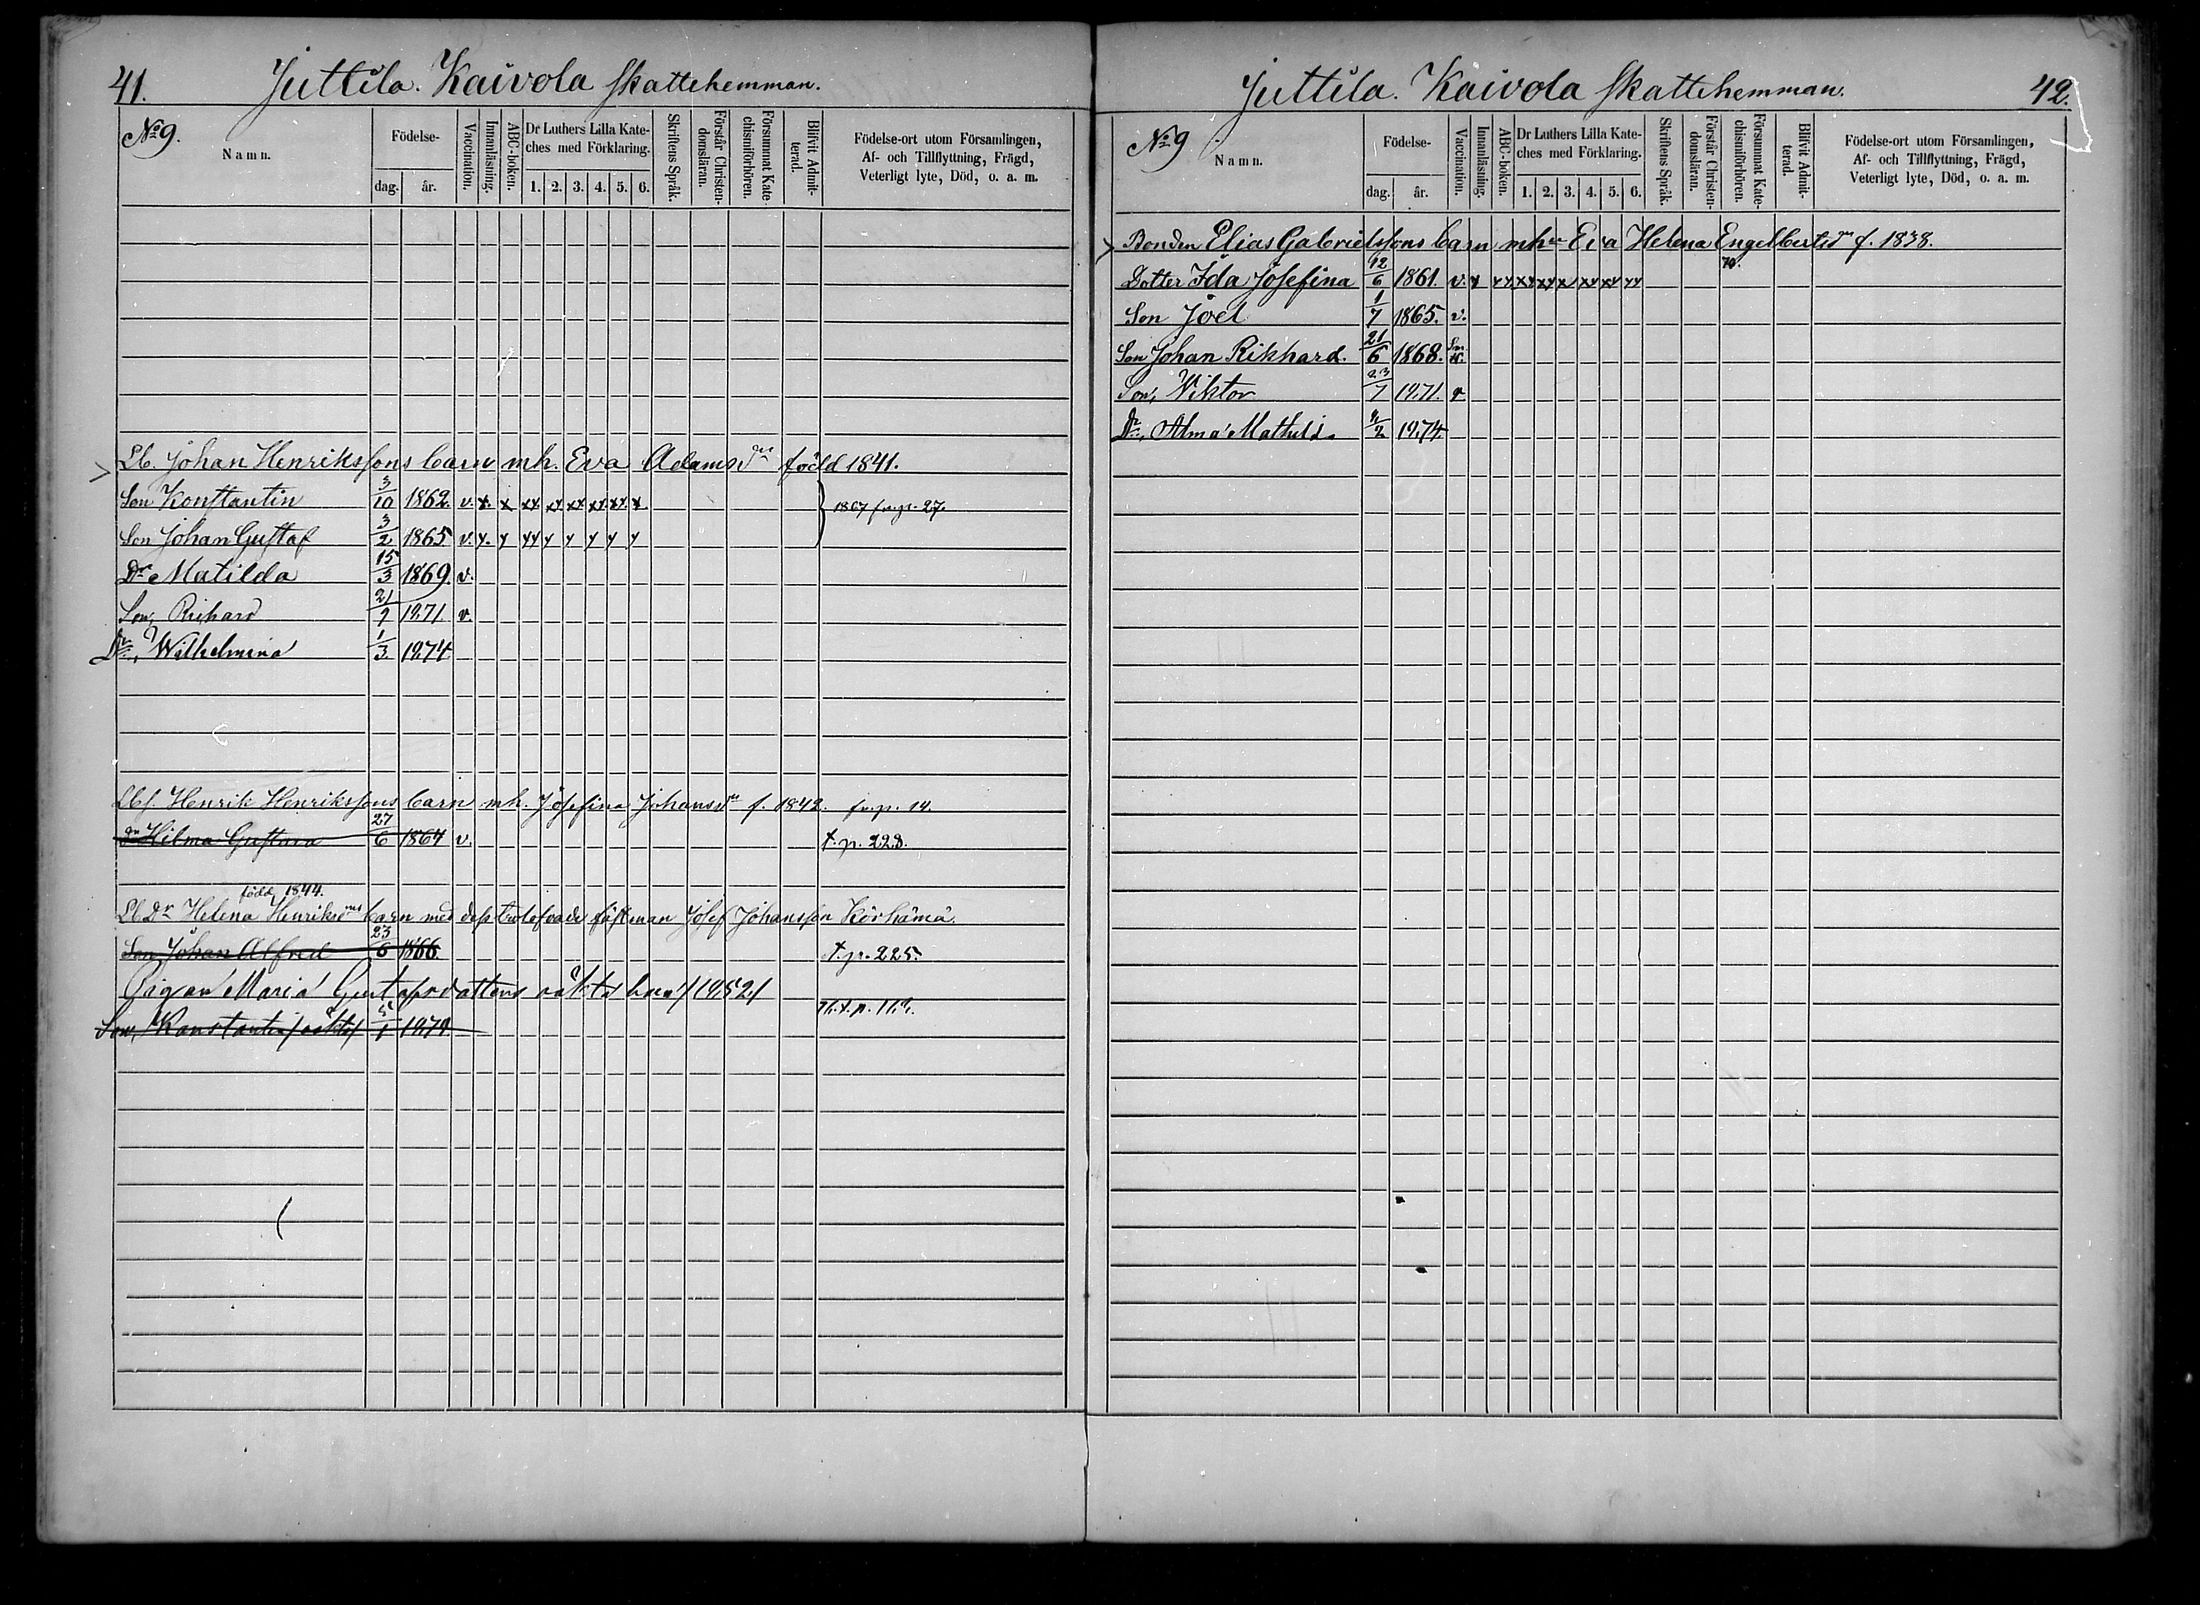 41. Juttila. Kaivola Skattehemman.
No 9. Namn.
Födelse-
dag. år.
Vaccination.
Innanläsning.
ABC-boken.
Dr Luthers Lilla Kate-
ches med Förklaring.
1. 2. 3. 4. 5. 6.
Skriftens Språk.
Förstår Christen-
domsläran.
Försummat Kate-
chismiförhören.
Blifvit Admit-
terad.
Födelse-ort utom Församlingen,
Af- och Tillflyttning, Frägd,
Veterligt lyte, Död, o. a. m.
Lb. Johan Henrikssons barn mh. Eva Adamsdr född 1841.
Son Konstantin 3/10 1862 v. x. x xx. xx xx xx. xx. x
1867 fr. p. 27.
Son Johan Gustaf 3/2 1865 v. x. x xx x x x x x
Dr Matilda 15/3 1869. v.
Son, Richard 21/9 1871 v.
Dr, Wilhelmina 1/3 1874
Lbs. Henrik Henrikssons barn mh. Josefina Johansdr f. 1842. fr. p. 14.
dr Hilma Gustava 27/6 1864 v. t. p. 228.
född 1844.
Lb Dr Helena Henriksdrs barn med dess trolofvade fästman Josef Johansson Körhämä.
Son Johan Alfred 23/6 1866 t. p. 225.
Pigan Maria Gustafsdotters oäkta barn /1852/
Son, Konstantin /oäkta/ 5/1 1870.
42. Juttila. Kaivola Skattehemman.
No 9 Namn.
Födelse-
dag. år.
Vaccination.
Innanläsning.
ABC-boken.
Dr Luthers Lilla Kate-
ches med Förklaring.
1. 2. 3. 4. 5. 6.
Skriftens Språk.
Förstår Christen-
domsläran.
Försummat Kate-
chismiförhören.
Blifvit Admit-
terad.
Födelse-ort utom Församlingen,
Af- och Tillflyttning, Frägd,
Veterligt lyte, Död, o. a. m.
Bonden Elias Gabrielssons barn mh Eva Helena Engelbertsdr f. 1838.
Dotter Ida Josefina 12/6 1861. v. x xx xx xx x xx xx xx
Son Joel 1/7 1865. v.
Son Johan Rikhard. 21/6 1868.
Son, Viktor 23/7 1871. v
Dr, Alma Mathilda 1874.